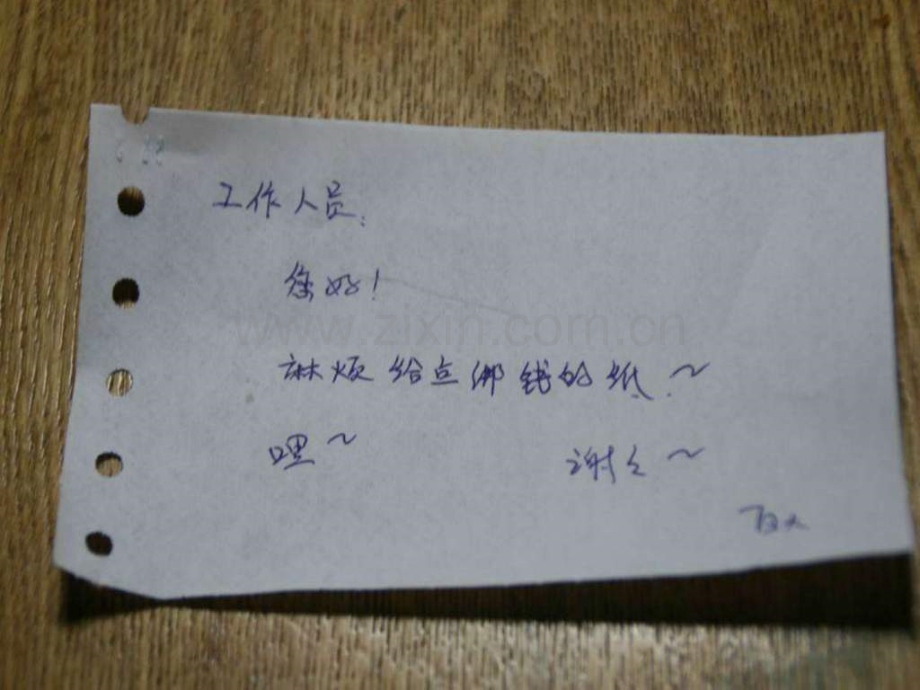 工作人员:
您好!
www.zixin.com.cn
麻烦给点绑钱的纸.~
哩~ 谢々~